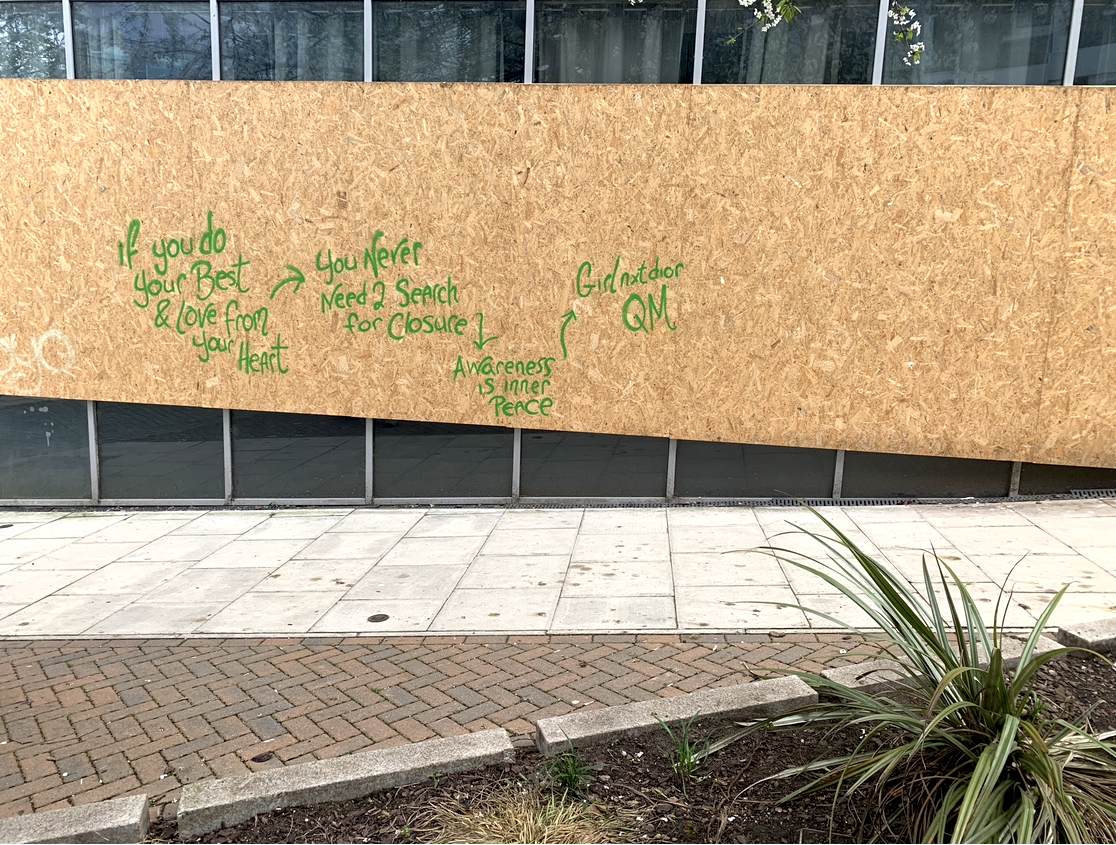 If you do
your Best
& love from
your
Heart
you Never
Need 2 Search
for Closure
Awareness
is inner
Peace
Girlnxtdior
QM